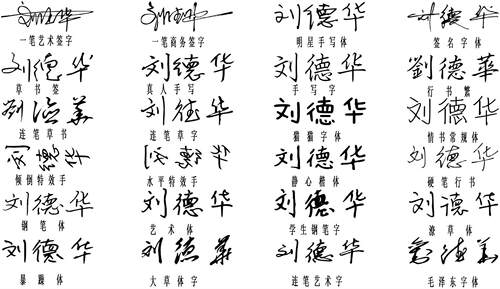 刘德华 刘德华 刘德华 刘德华
一笔艺术签字 一笔商务签字 明星手写体 签名字体
刘德华 刘德华 刘德华 劉德華
草书签 真人手写 手写字 行书繁
刘德华 刘德华 刘德华 刘德华
连笔草书 连笔草字 猫猫字体 情书常规体
刘德华 刘德华 刘德华 刘德华
倾倒特效手 水平特效手 静心楷体 硬笔行书
刘德华 刘德华 刘德华 刘德华
钢笔体 艺术体 学生钢笔字 潦草体
刘德华 刘德华 刘德华 刘德华
暴躁体 大草体字 连笔艺术字 毛泽东字体